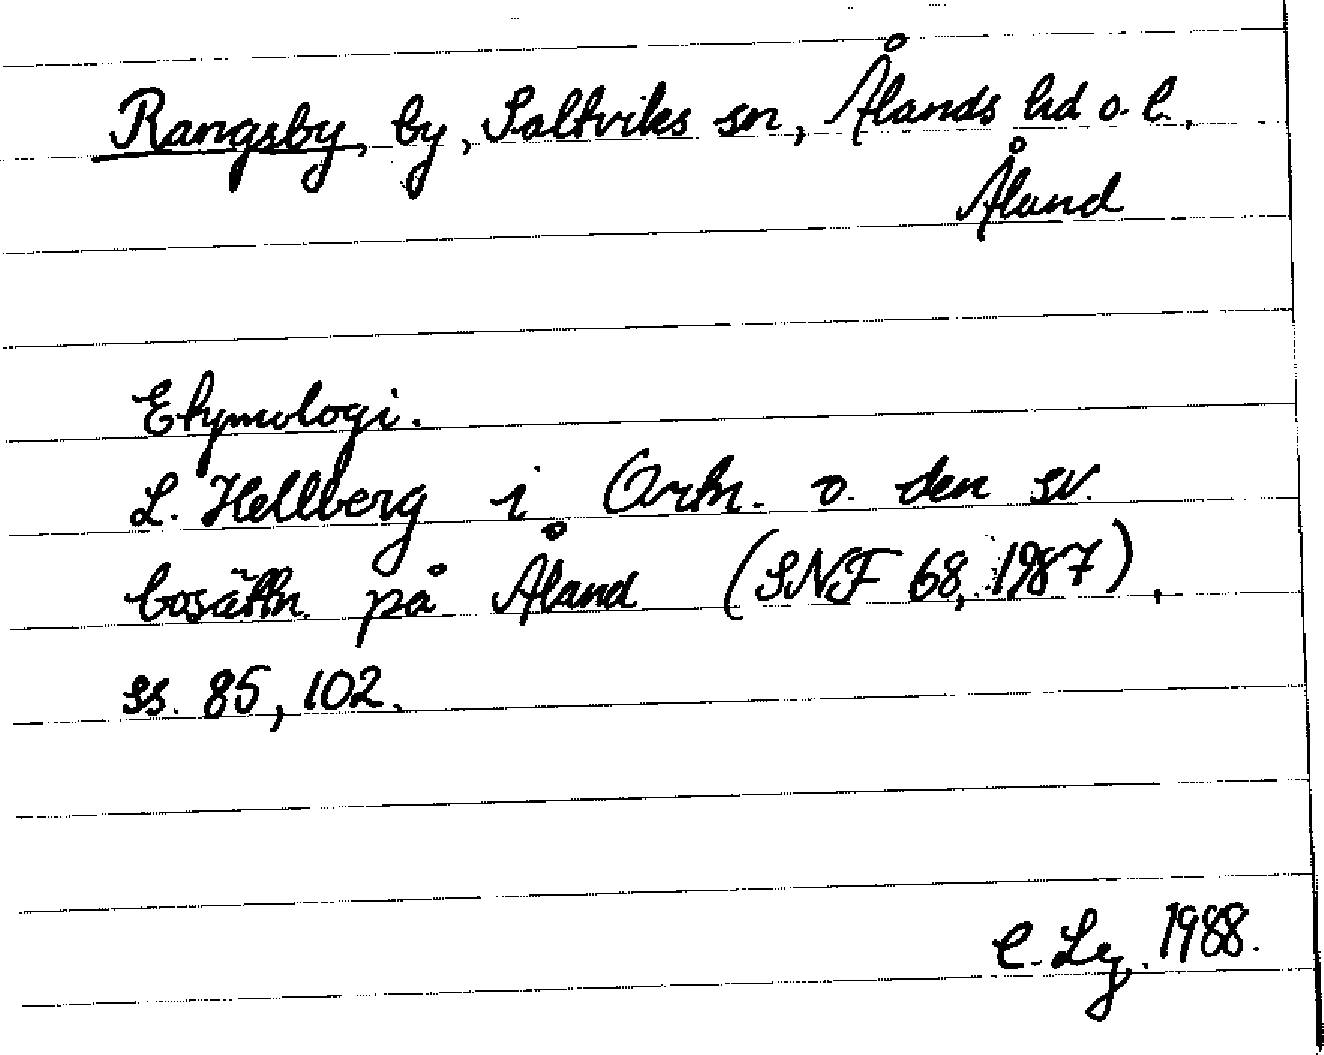 Rangsby, by, Saltviks sn, Ålands hd o. l.,
Åland
Etymologi.
L. Hellberg i Ortn. o. den sv.
bosättn. på Åland (SNF 68, 1987),
ss. 85, 102.
C. Lg. 1988.